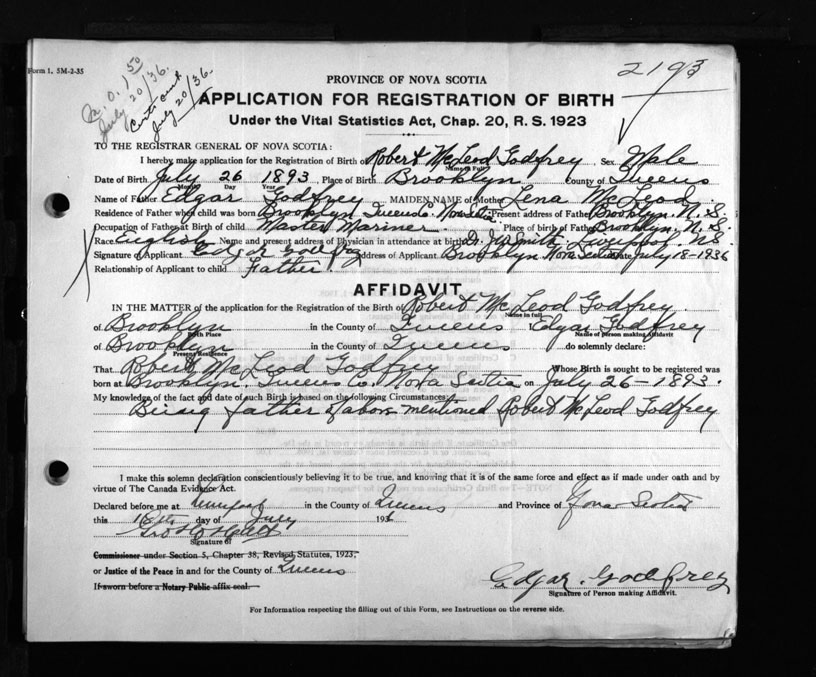 Form 1. 5M-2-35
2193
July 20/36.
July 20/36.
PROVINCE OF NOVA SCOTIA
APPLICATION FOR REGISTRATION OF BIRTH
Under the Vital Statistics Act, Chap. 20, R. S. 1923
TO THE REGISTRAR GENERAL OF NOVA SCOTIA:
I hereby make application for the Registration of Birth of Robert McLeod Godfrey Sex Male
Name in Full
Date of Birth July 26 1893 Place of Birth Brooklyn County of Queens
Month Day Year
Name of Father Edgar Godfrey MAIDEN NAME of Mother Lena McLeod
Residence of Father when child was born Brooklyn Queens Co. Nova Scotia Present address of Father Brooklyn N. S.
Occupation of Father at Birth of child Master Mariner Place of birth of Father Brooklyn, N. S.
Race English Name and present address of Physician in attendance at birth Dr. Smith, Liverpool NS.
Signature of Applicant Edgar Godfrey Address of Applicant Brooklyn Nova Scotia Date July 18-1936
Relationship of Applicant to child Father.
AFFIDAVIT
IN THE MATTER of the application for the Registration of the Birth of Robert McLeod Godfrey
Name in full
of Brooklyn in the County of Queens I Edgar Godfrey
Birth Place Name of Person making Affidavit
of Brooklyn in the County of Queens do solemnly declare:
Present Residence
That Robert McLeod Godfrey Whose Birth is sought to be registered was
born at Brooklyn. Queens Co. Nova Scotia on July 26-1893.
My knowledge of the fact and date of such Birth is based on the following Circumstances:
Being father of above mentioned Robert McLeod Godfrey
I make this solemn declaration conscientiously believing it to be true, and knowing that it is of the same force and effect as if made under oath and by
virtue of The Canada Evidence Act.
Declared before me at in the County of Queens and Province of Nova Scotia
this 18th day of July 1936
Signature of
Commissioner under Section 5, Chapter 38, Revised Statutes, 1923,
or Justice of the Peace in and for the County of Queens
If sworn before a Notary Public affix seal.
Edgar Godfrey
Signature of Person making Affidavit.
For Information respecting the filling out of this Form, see Instructions on the reverse side.